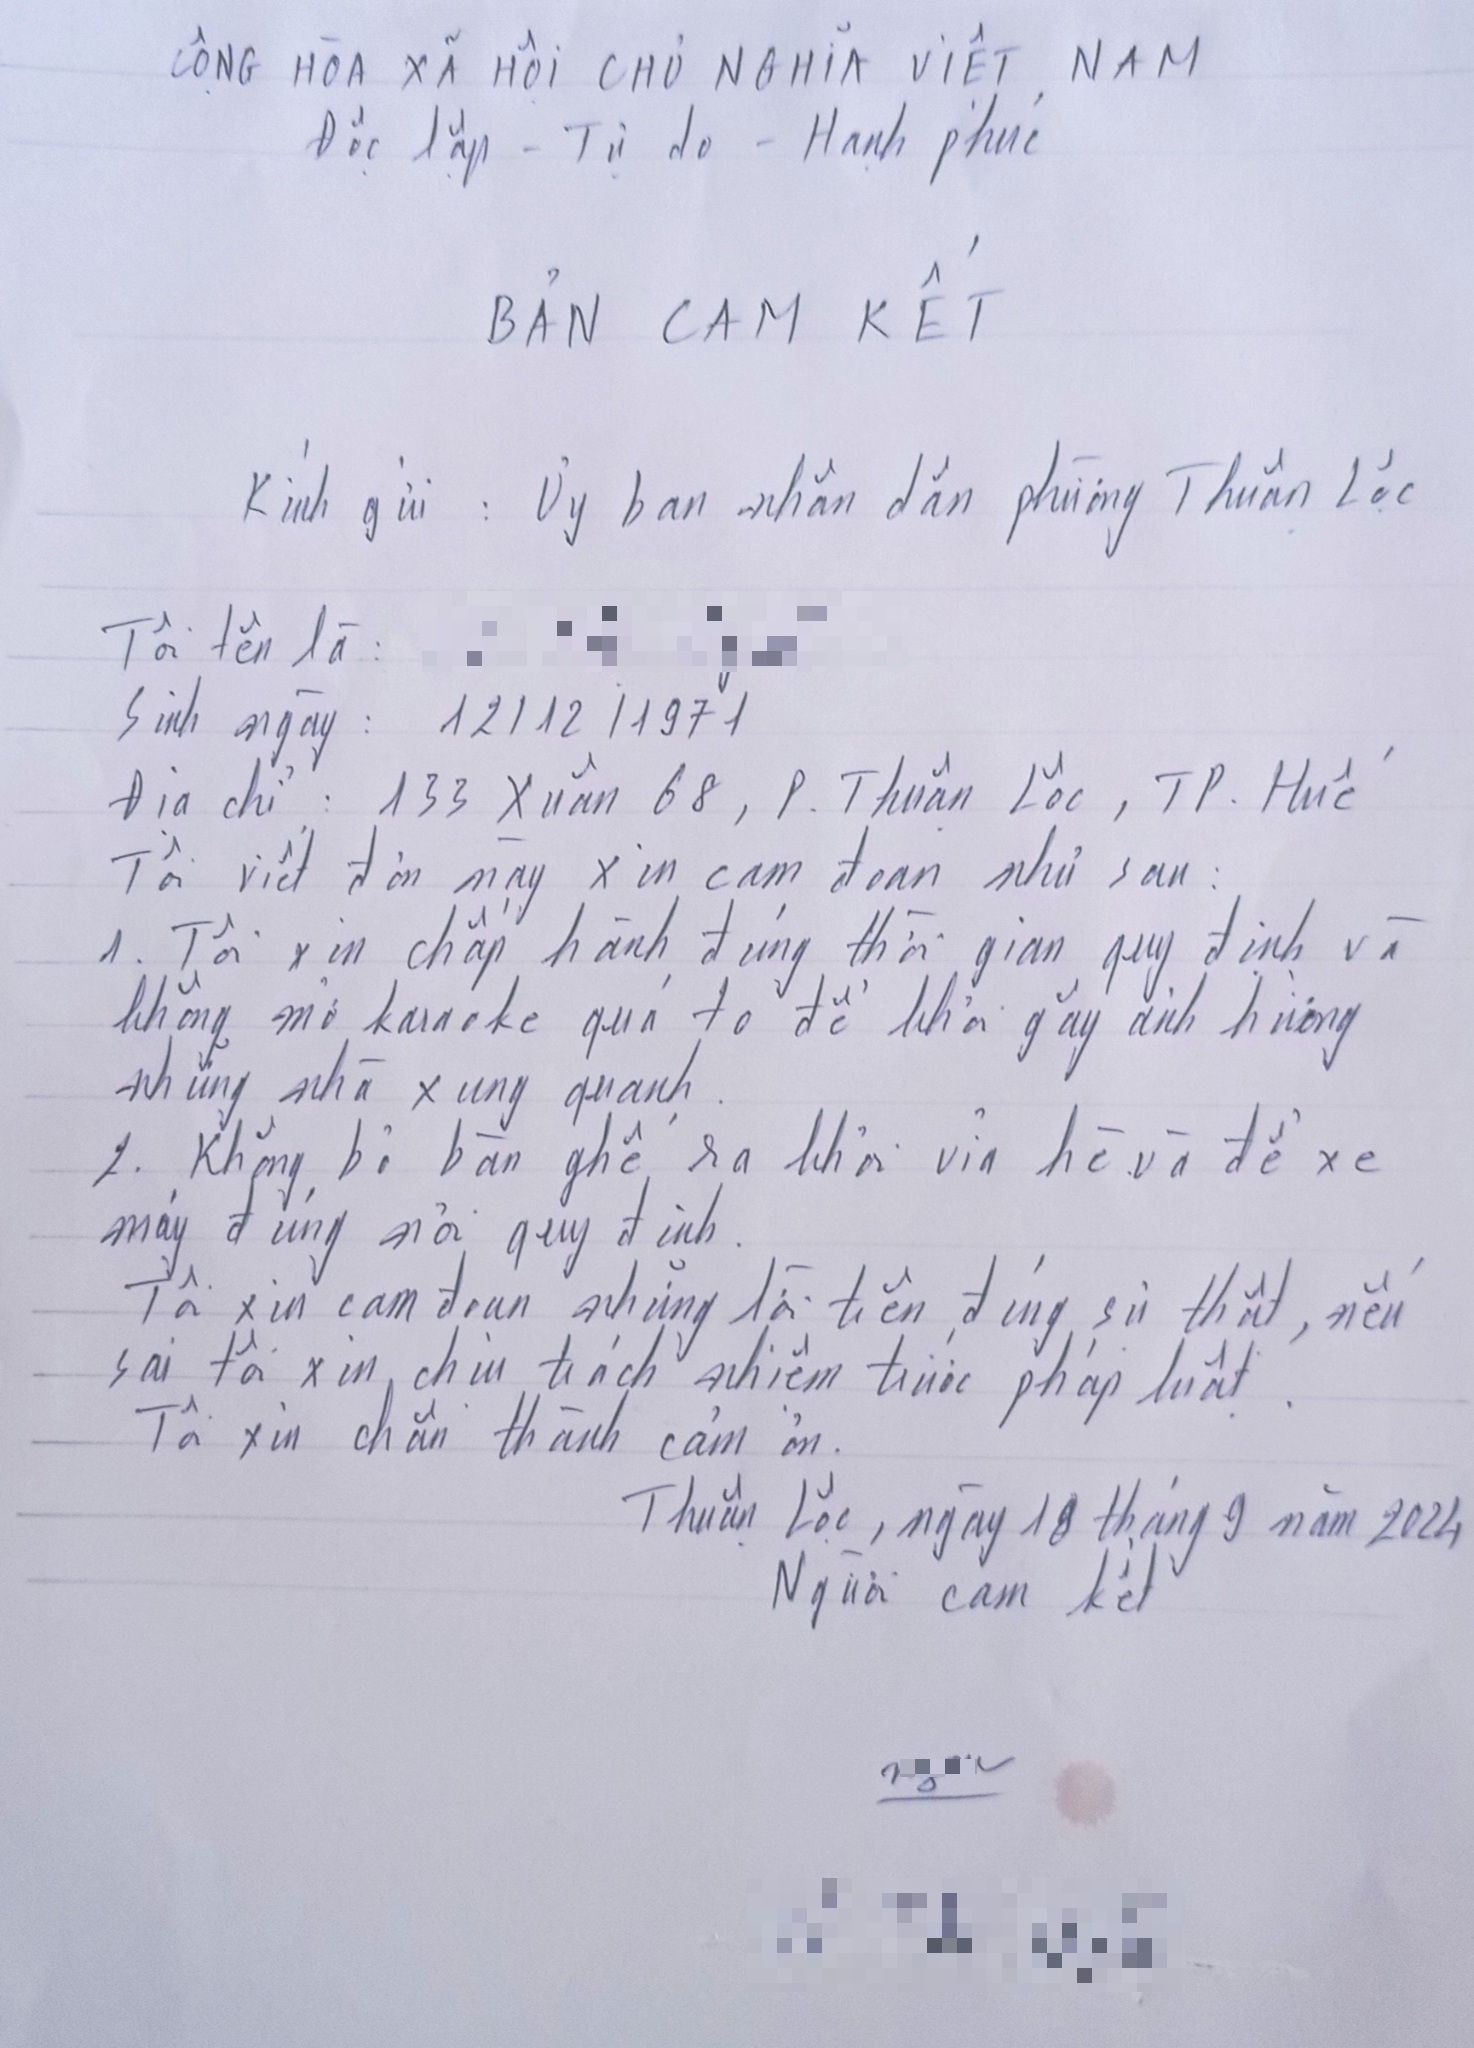 CỘNG HÒA XÃ HỘI CHỦ NGHĨA VIỆT NAM
Độc lập - Tự do - Hạnh phúc
BẢN CAM KẾT
Kính gửi : Ủy ban nhân dân phường Thuận Lộc
Tôi tên là :
Sinh ngày : 12/12/1971
Địa chỉ : 133 Xuân 68, P. Thuận Lộc, TP. Huế
Tôi viết đơn này xin cam đoan như sau :
1. Tôi xin chấp hành đúng thời gian quy định và
không mở karaoke quá to để khỏi gây ảnh hưởng
những nhà xung quanh.
2. Không bỏ bàn ghế ra khỏi vỉa hè và để xe
máy đúng nơi quy định.
Tôi xin cam đoan những lời trên đúng sự thật, nếu
sai tôi xin chịu trách nhiệm trước pháp luật.
Tôi xin chân thành cảm ơn.
Thuận Lộc, ngày 18 tháng 9 năm 2024
Người cam kết